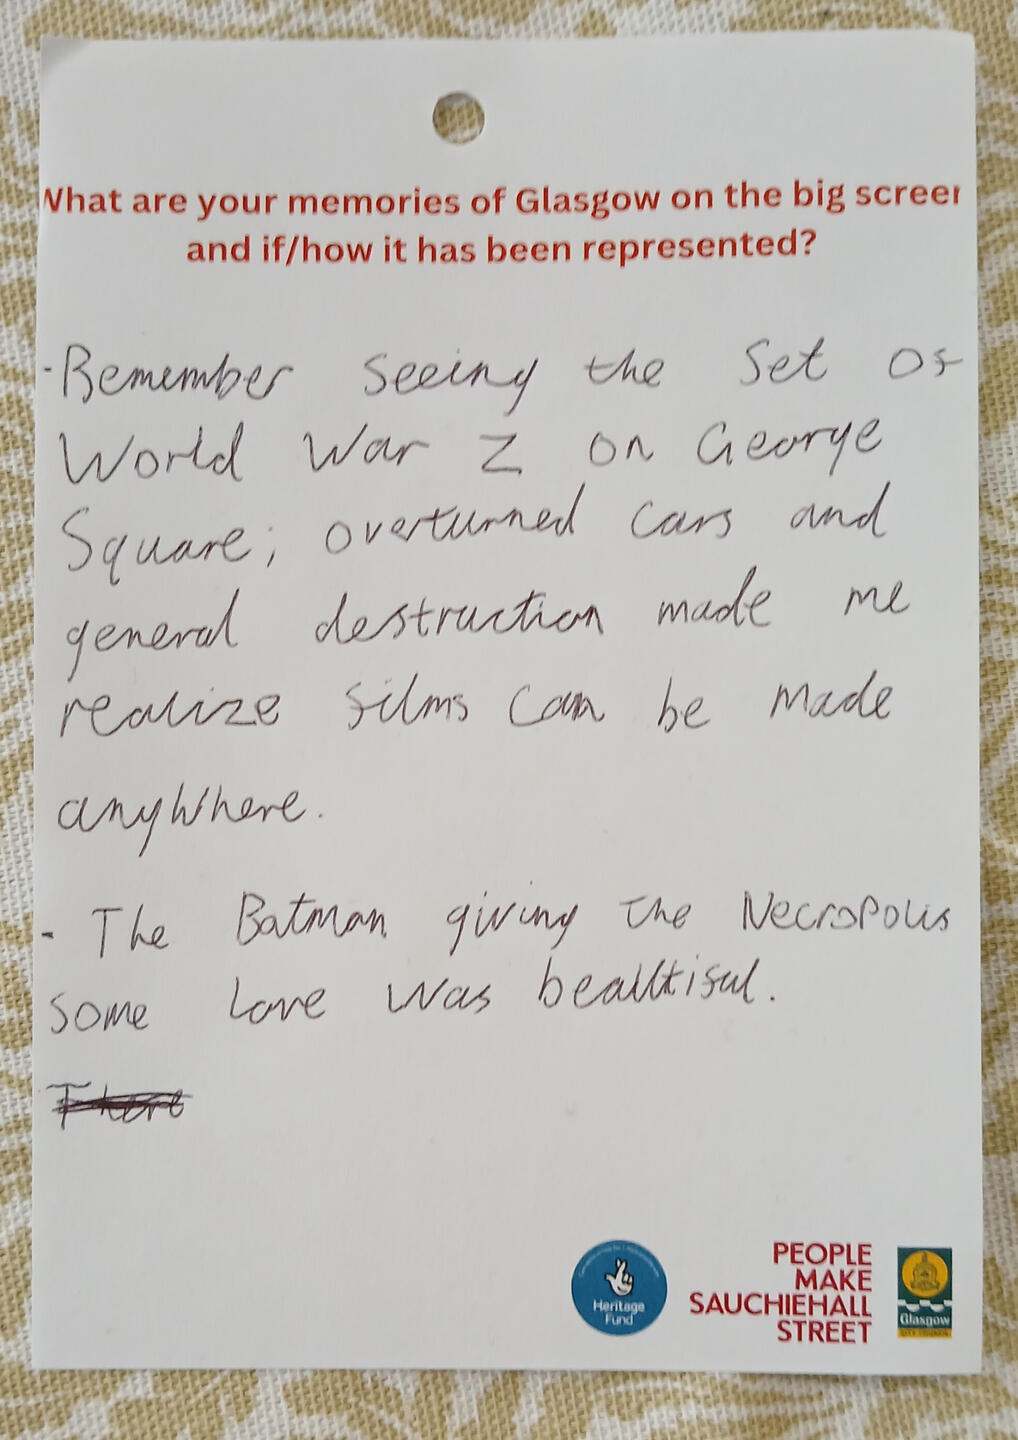 What are your memories of Glasgow on the big screen
and if/how it has been represented?
- Remember seeing the set of
World War Z on George
Square; overturned cars and
general destruction made me
realize films can be made
anywhere.
- The Batman giving the Necropolis
some love was beautiful.
There
Heritage
Fund
PEOPLE
MAKE
SAUCHIEHALL
STREET
Glasgow
CITY COUNCIL